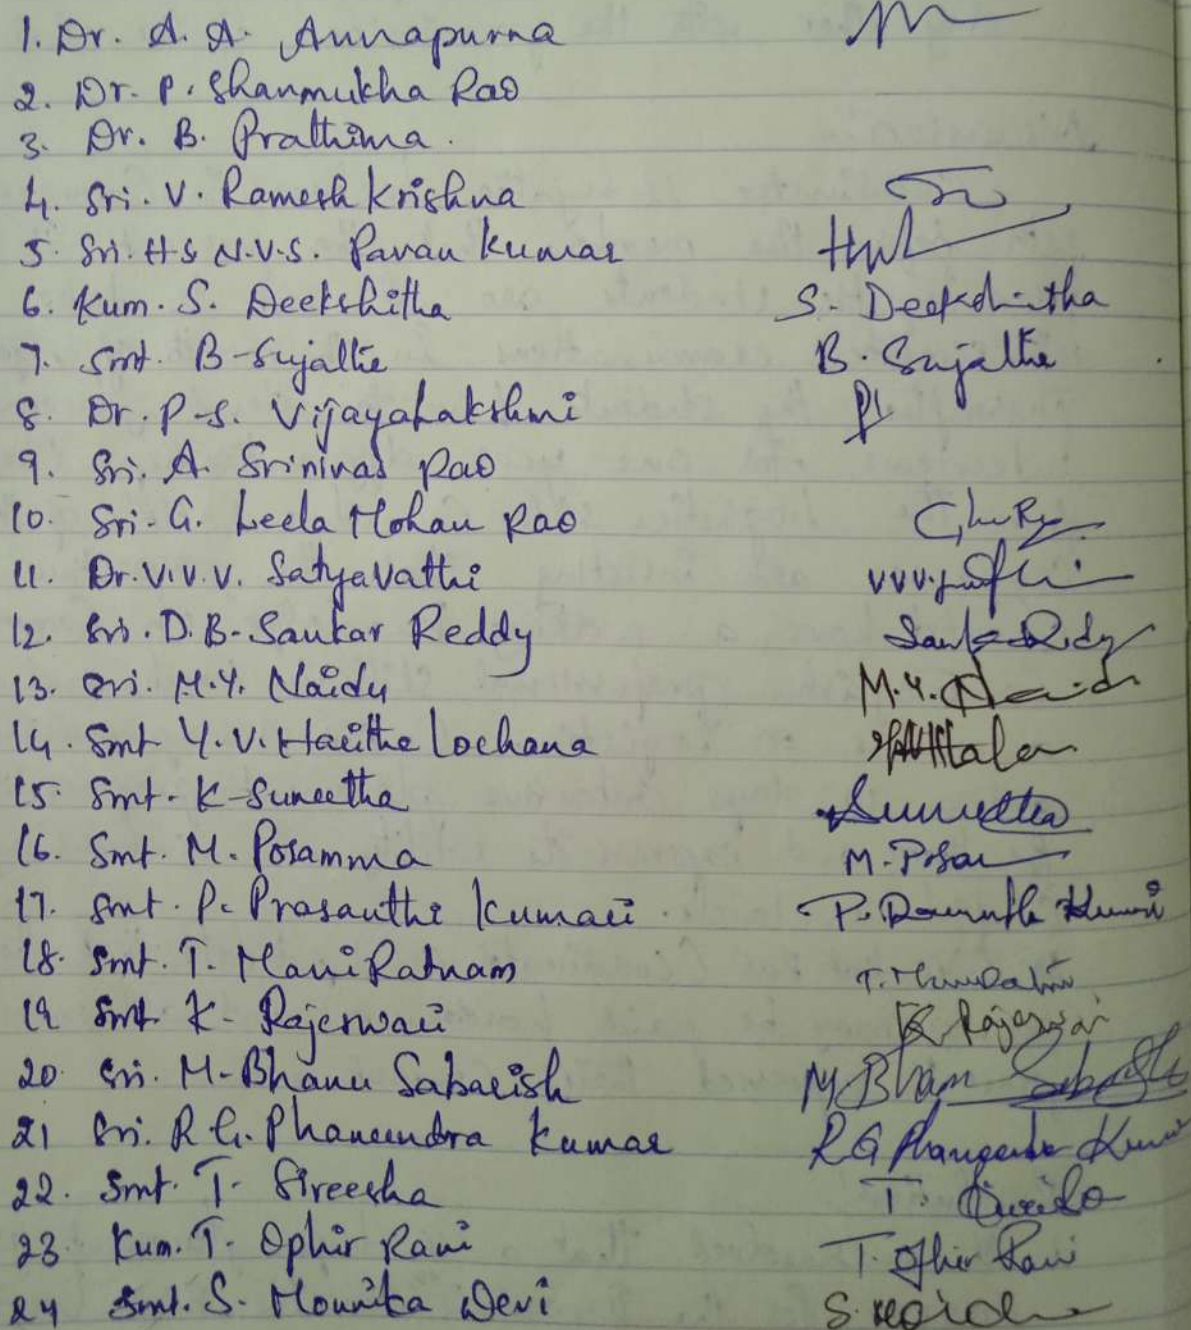 1. Dr. A. A. Annapurna
2. Dr. P. Shanmukha Rao
3. Dr. B. Prathima.
4. Sri. V. Ramesh Krishna
5. Sri. H S N.V.S. Pavan Kumar
6. Kum. S. Deekshitha S. Deekshitha
7. Smt. B-Sujatha B. Sujatha
8. Dr. P-S. VijayaLakshmi
9. Sri. A. Srinivas Rao
10. Sri. G. Leela Mohan Rao
11. Dr. V.V.V. Satyavathi
12. Sri. D.B-Sankar Reddy Sankar Reddy
13. Sri. M.Y. Naidu M.Y. Naidu
14. Smt Y.V. Haritha Lochana
15. Smt. K-Suneetha Suneetha
16. Smt. M. Posamma M. Posa
17. Smt. P. Prasanthi Kumari P. Prasanthi Kumari
18. Smt. T. Mani Ratnam T. ManiRatnam
19 Smt. K- Rajeswari K Rajeswari
20. Sri. M-Bhanu Sabarish M Bhanu Sabarish
21 Sri. R G. Phaneendra Kumar R G Phaneendra Kumar
22. Smt. T. Sireesha
23 Kum. T. Ophir Rani T. Ophir Rani
24 Smt. S. Mounika Devi